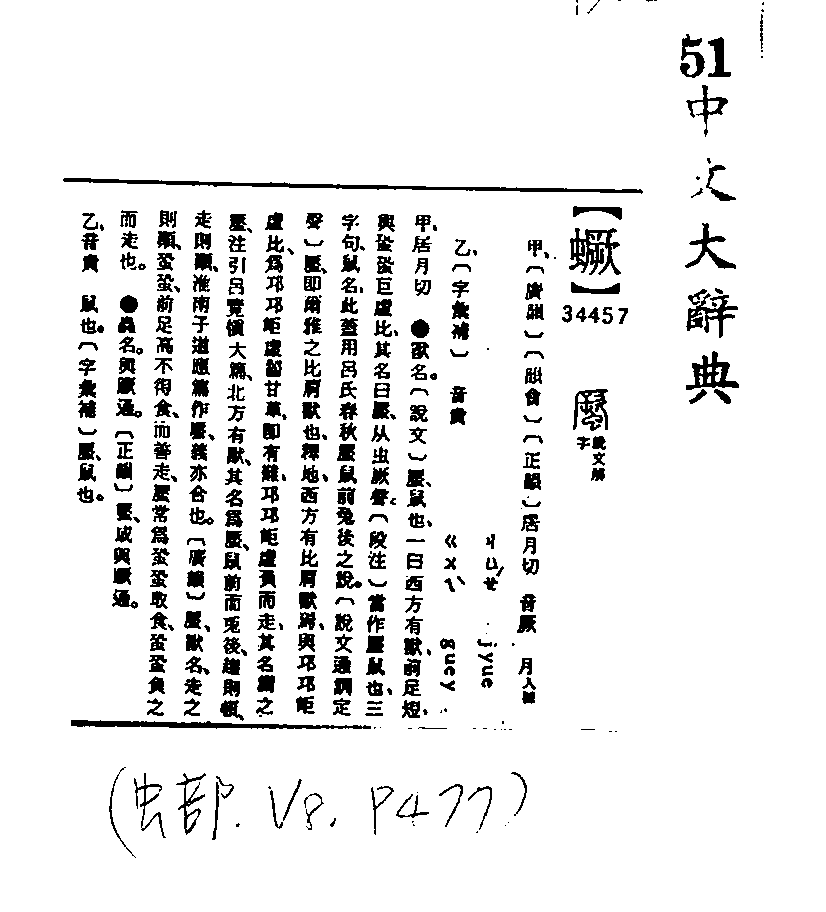 51
中文大辭典
【蟩】
34457
說文解字
甲、〔廣韻〕〔韻會〕〔正韻〕居月切 音厥 月入聲
ㄐㄩㄝˊ jyue
乙、〔字彙補〕 音貴
ㄍㄨㄟˋ guey
甲、居月切 ●獸名。〔說文〕蟨、鼠也、一曰西方有獸、前足短、
與蛩蛩巨虛比、其名曰蟨、从虫厥聲。〔段注〕當作蟨鼠也、三
字句、鼠名、此蓋用呂氏春秋鼠前兔後之說。〔說文通訓定
聲〕蟨、即爾雅之比肩獸也、釋地、西方有比肩獸焉、與邛邛岠
虛比、爲邛邛岠虛齧甘草、即有難、邛邛岠虛負而走、其名謂之
蟨、注引呂覽愼大篇、北方有獸、其名爲蟨、鼠前而兎後、趨則頓、
走則顚、淮南子道應篇作蟨、義亦合也。〔廣韻〕蟨、獸名、走之
則顚、蛩蛩、前足高不得食、而善走、蟨常爲蛩蛩取食、蛩蛩負之
而走也。 ●蟲名。與蟩通。〔正韻〕蟨、或與蟩通。
乙、音貴 鼠也。〔字彙補〕蟨、鼠也。
(虫部. V8. P477)